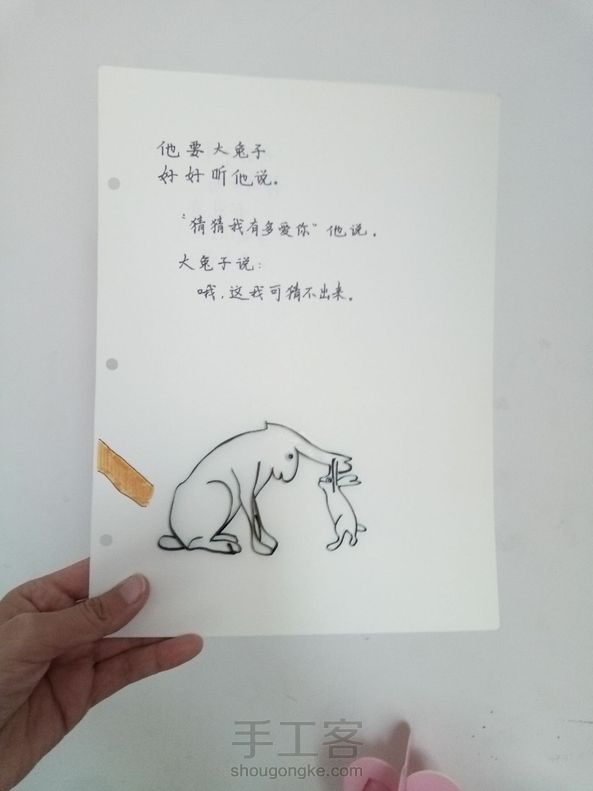 他要大兔子
好好听他说。
“猜猜我有多爱你”他说.
大兔子说:
哦,这我可猜不出来。
手工客
shougongke.com